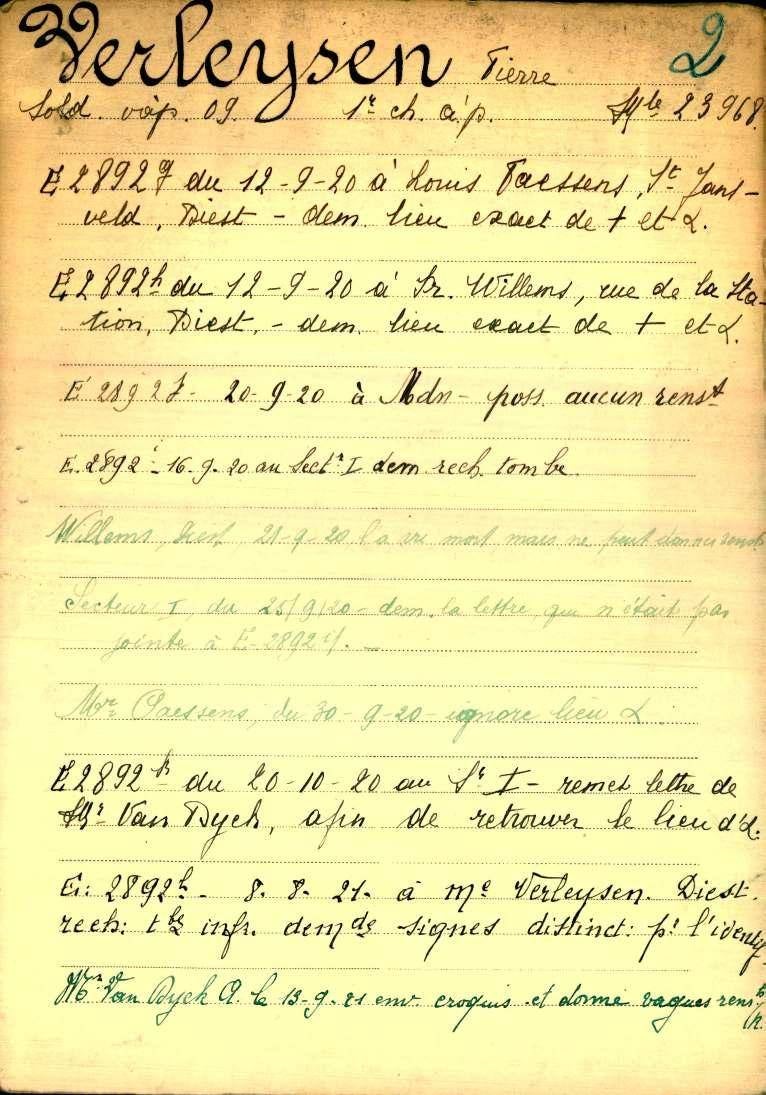 Verleysen Pierre 2
Sold. vàp. 09. 1r ch. à p. 23968.
E 2892 g du 12-9-20 à Louis Paessens, St Jans-
veld, Diest - dem. lieu exact de + et α.
E 2892 h du 12-9-20 à Sr. Willems, rue de la Sta-
tion, Diest, - dem. lieu exact de + et α.
E 2892 20-9-20 à Mdn - poss. aucun renst
E. 2892 i - 16-9-20 au Sectr I dem. rech. tombe.
Willems, Diest, 21-9-20 l'a vu mort mais ne peut donner
Secteur I, du 25/9/20 - dem. la lettre, qui n'était pas
jointe à E-2892 i/. -
Paessens, du 30-9-20 - ignore lieu α.
E 2892 du 20-10-20 au Sr I - remet lettre de
Van Dyck, afin de retrouver le lieu d'α.
E: 2892 - 8. 8. 21. à Me Verleysen. Diest.
rech: tbe infr. demde signes distinct: pr l'identif
Mr Van Dyck A. le 13-9-21 env. croquis et donne vagues rensts